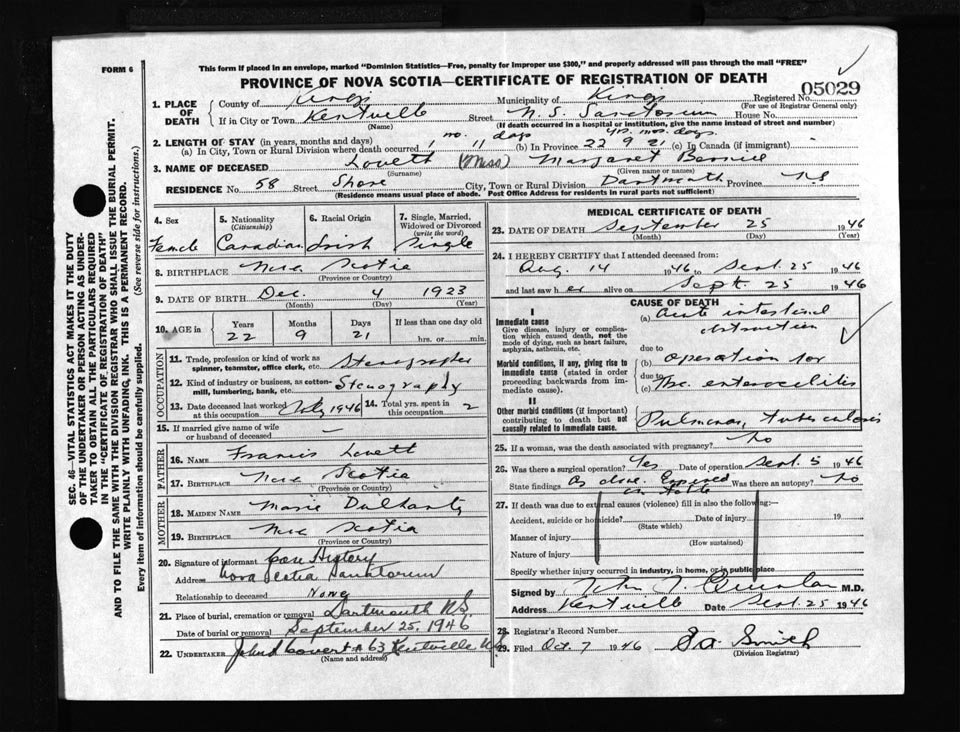 FORM 6
This form if placed in an envelope, marked "Dominion Statistics—Free, penalty for improper use $300," and properly addressed will pass through the mail "FREE"
PROVINCE OF NOVA SCOTIA—CERTIFICATE OF REGISTRATION OF DEATH
05029
1. PLACE OF DEATH
County of Kings Municipality of Kings Registered No.
(For use of Registrar General only)
If in City or Town Kentville Street N. S. Sanatorium House No.
(Name) (If death occurred in a hospital or institution, give the name instead of street and number)
mo. days yrs. mos. days
2. LENGTH OF STAY (in years, months and days)
(a) In City, Town or Rural Division where death occurred 1 11 (b) In Province 22 9 21 (c) In Canada (if immigrant)
3. NAME OF DECEASED Lovett (Miss) Margaret Bernice
(Surname) (Given name or names)
RESIDENCE No. 58 Street Shore City, Town or Rural Division Dartmouth Province N.S
(Residence means usual place of abode. Post Office Address for residents in rural parts not sufficient)
4. Sex
Female
5. Nationality
(Citizenship)
Canadian
6. Racial Origin
Irish
7. Single, Married, Widowed or Divorced
(write the word)
Single
8. BIRTHPLACE Nova Scotia
(Province or Country)
9. DATE OF BIRTH Dec. 4 1923
(Month) (Day) (Year)
10. AGE in Years Months Days If less than one day old
22 9 21 hrs. or min.
OCCUPATION
11. Trade, profession or kind of work as
spinner, teamster, office clerk, etc. Stenographer
12. Kind of industry or business, as cotton-
mill, lumbering, bank, etc. Stenography
13. Date deceased last worked
at this occupation July 1946
14. Total yrs. spent in
this occupation 2
15. If married give name of wife
or husband of deceased —
FATHER
16. NAME Francis Lovett
17. BIRTHPLACE Nova Scotia
(Province or Country)
MOTHER
18. MAIDEN NAME Marie Dulhanty
19. BIRTHPLACE Nova Scotia
(Province or Country)
20. Signature of informant Case History
Address Nova Scotia Sanatorium
Relationship to deceased None
21. Place of burial, cremation or removal Dartmouth N.S.
Date of burial or removal September 25, 1946
22. UNDERTAKER 63 Kentville N.S.
(Name and address)
MEDICAL CERTIFICATE OF DEATH
23. DATE OF DEATH September 25 1946
(Month) (Day) (Year)
24. I HEREBY CERTIFY that I attended deceased from:
Aug. 14 1946 to Sept. 25 1946
and last saw her alive on Sept. 25 1946
CAUSE OF DEATH
I
Immediate cause
Give disease, injury or complica-
tion which caused death, not the
mode of dying, such as heart failure,
asphyxia, asthenia, etc.
(a) Acute intestinal
obstruction
due to
Morbid conditions, if any, giving rise to
immediate cause (stated in order
proceeding backwards from im-
mediate cause).
(b) operation for
due to
(c) tbc. enterocolitis
II
Other morbid conditions (if important)
contributing to death but not
causally related to immediate cause.
Pulmonary tuberculosis
25. If a woman, was the death associated with pregnancy? No
26. Was there a surgical operation? Yes Date of operation Sept. 5 1946
State findings As above. Expired on table Was there an autopsy? No
27. If death was due to external causes (violence) fill in also the following:—
Accident, suicide or homicide? Date of injury 19
(State which)
Manner of injury
(How sustained)
Nature of injury
Specify whether injury occurred in industry, in home, or in public place
Signed by John J. Quinlan M.D.
Address Kentville Date Sept. 25 1946
28. Registrar's Record Number
29. Filed Oct. 7 1946 Smith
(Division Registrar)
SEC. 46—VITAL STATISTICS ACT MAKES IT THE DUTY
OF THE UNDERTAKER OR PERSON ACTING AS UNDER-
TAKER TO OBTAIN ALL THE PARTICULARS REQUIRED
IN THE "CERTIFICATE OF REGISTRATION OF DEATH"
AND TO FILE THE SAME WITH THE DIVISION REGISTRAR WHO SHALL ISSUE THE BURIAL PERMIT.
WRITE PLAINLY WITH UNFADING, INK. THIS IS A PERMANENT RECORD.
Every item of information should be carefully supplied. (See reverse side for instructions.)